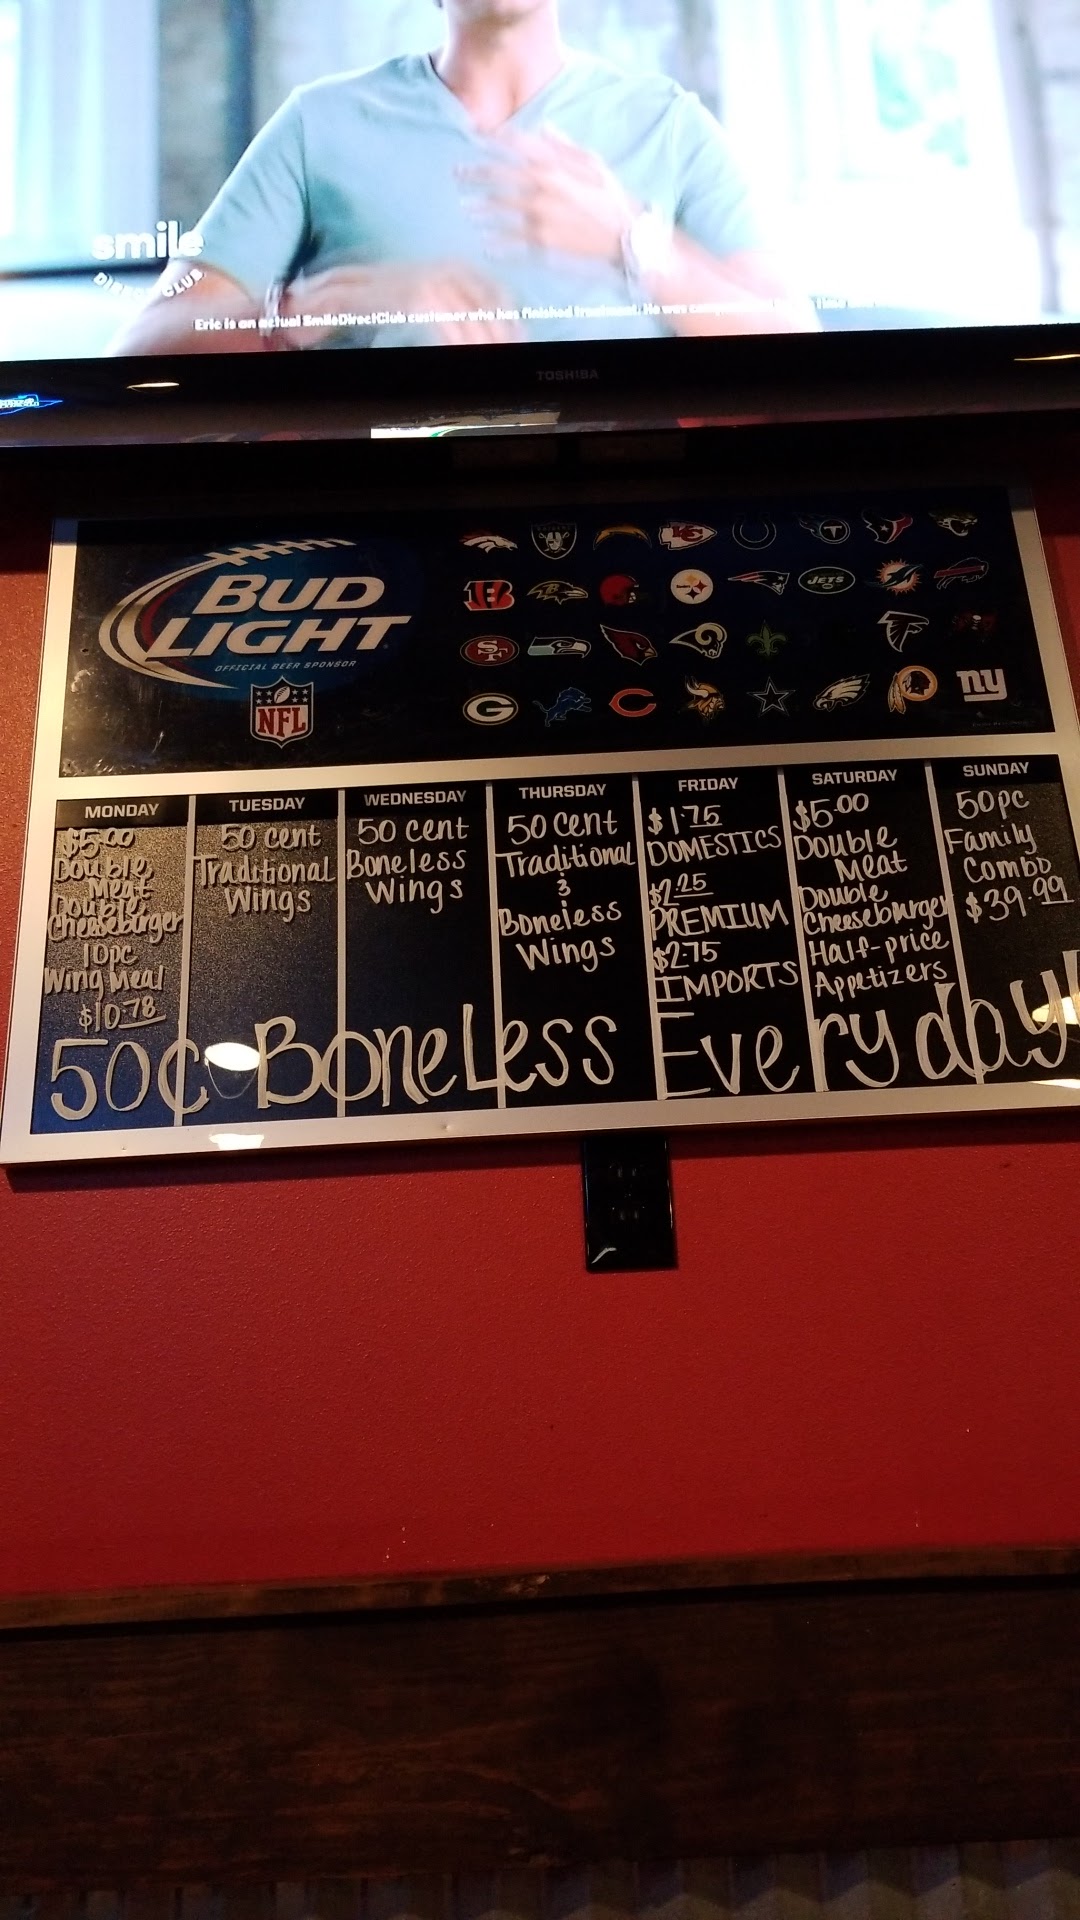 smile
DIRECT CLUB
Eric is an actual SmileDirectClub customer who has finished treatment. He was
TOSHIBA
BUD
LIGHT
OFFICIAL BEER SPONSOR
NFL
JETS
SF
G
ny
MONDAY
$5.00
Double
Meat
Double
Cheeseburger
10pc
Wing Meal
$10.78
TUESDAY
50 cent
Traditional
Wings
WEDNESDAY
50 cent
Boneless
Wings
THURSDAY
50 cent
Traditional
&
Boneless
Wings
FRIDAY
$1.75
DOMESTICS
$2.25
PREMIUM
$2.75
IMPORTS
SATURDAY
$5.00
Double
Meat
Double
Cheeseburger
Half-price
Appetizers
SUNDAY
50pc
Family
Combo
$39.99
50¢ BoneLess Everyday